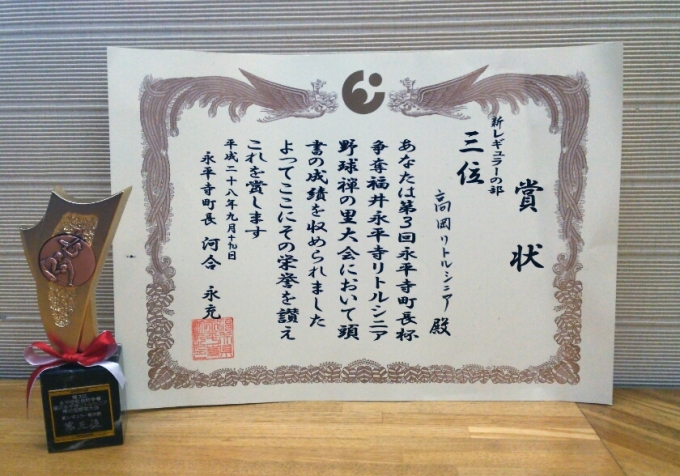 賞状
新レギュラーの部
三位
高岡リトルシニア殿
あなたは第3回永平寺町長杯
争奪福井永平寺リトルシニア
野球禅の里大会において頭
書の成績を収められました
よってここにその栄誉を讃え
これを賞します
平成二十八年九月十九日
永平寺町長 河合 永充
第三位